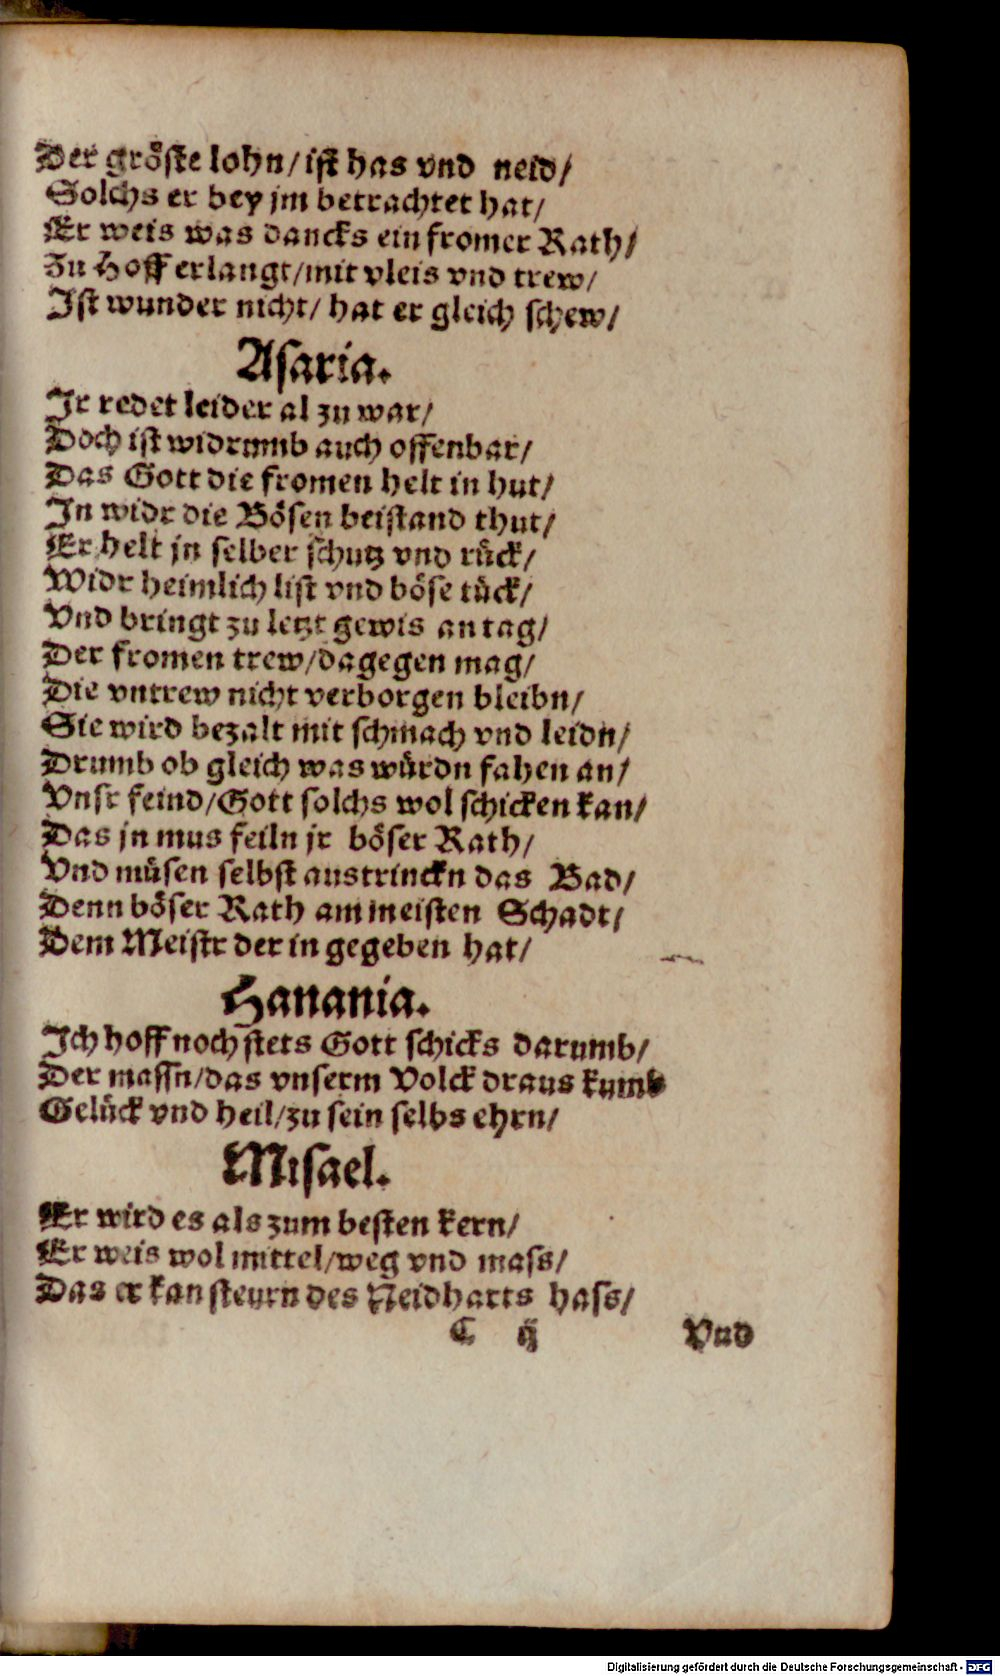 Der gröste lohn/ ist has vnd neid/
Solchs er bey jm betrachtet hat/
Er weis was dancks ein fromer Rath/
Zu Hoff erlangt/ mit vleis vnd trew/
Ist wunder nicht/ hat er gleich schew/
Asaria.
Jr redet leider al zu war/
Doch ist widrumb auch offenbar/
Das Gott die fromen helt in hut/
In widr die Bösen beistand thut/
Er helt jn selber schutz vnd rück/
Widr heimlich list vnd böse tück/
Vnd bringt zu letzt gewis an tag/
Der fromen trew/ dagegen mag/
Die vntrew nicht verborgen bleibn/
Sie wird bezalt mit schmach vnd leidn/
Drumb ob gleich was würdn fahen an/
Vnsr feind/ Gott solchs wol schicken kan/
Das jn mus feiln jr böser Rath/
Vnd müsen selbst austrinckn das Bad/
Denn böser Rath am meisten Schadt/
Dem Meistr der in gegeben hat/
Hanania.
Ich hoff noch stets Gott schicks darumb/
Der massn/ das vnserm Volck draus kumb
Gelück vnd heil/ zu sein selbs ehrn/
Misael.
Er wird es als zum besten kern/
Er weis wol mittel/ weg vnd mass/
Das er kan steurn des Neidharts hass/
C ij Vnd
Digitalisierung gefördert durch die Deutsche Forschungsgemeinschaft - DFG